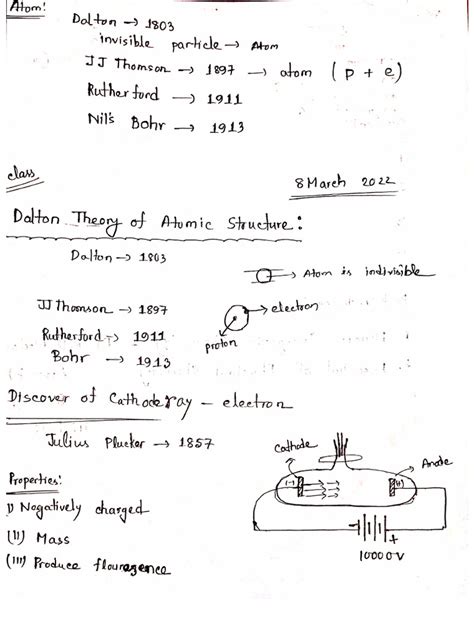 Atom:
Dalton → 1803
invisible particle → Atom
JJ Thomson → 1897 → atom (p + e)
Rutherford → 1911
Nil's Bohr → 1913
class
8 March 2022
Dalton Theory of Atomic Structure:
Dalton → 1803
→ Atom is indivisible
JJ Thomson → 1897
→ electron
Rutherford → 1911
proton
Bohr → 1913
Discover of Cathode ray - electron
Julius Plucker → 1857
Cathode
Anode
Properties:
(-)
(+)
i) Negatively charged
(ii) Mass
+
10000V
(iii) Produce flouragence